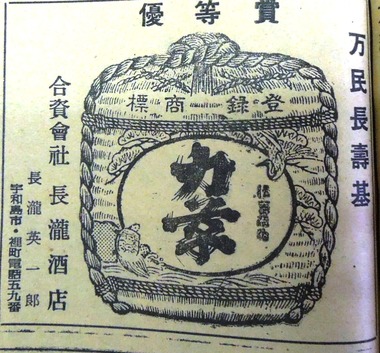 万民長壽基
優等賞
登錄商標
合資會社 長瀧酒店
長瀧英一郎
宇和島市・裡町電話五九番